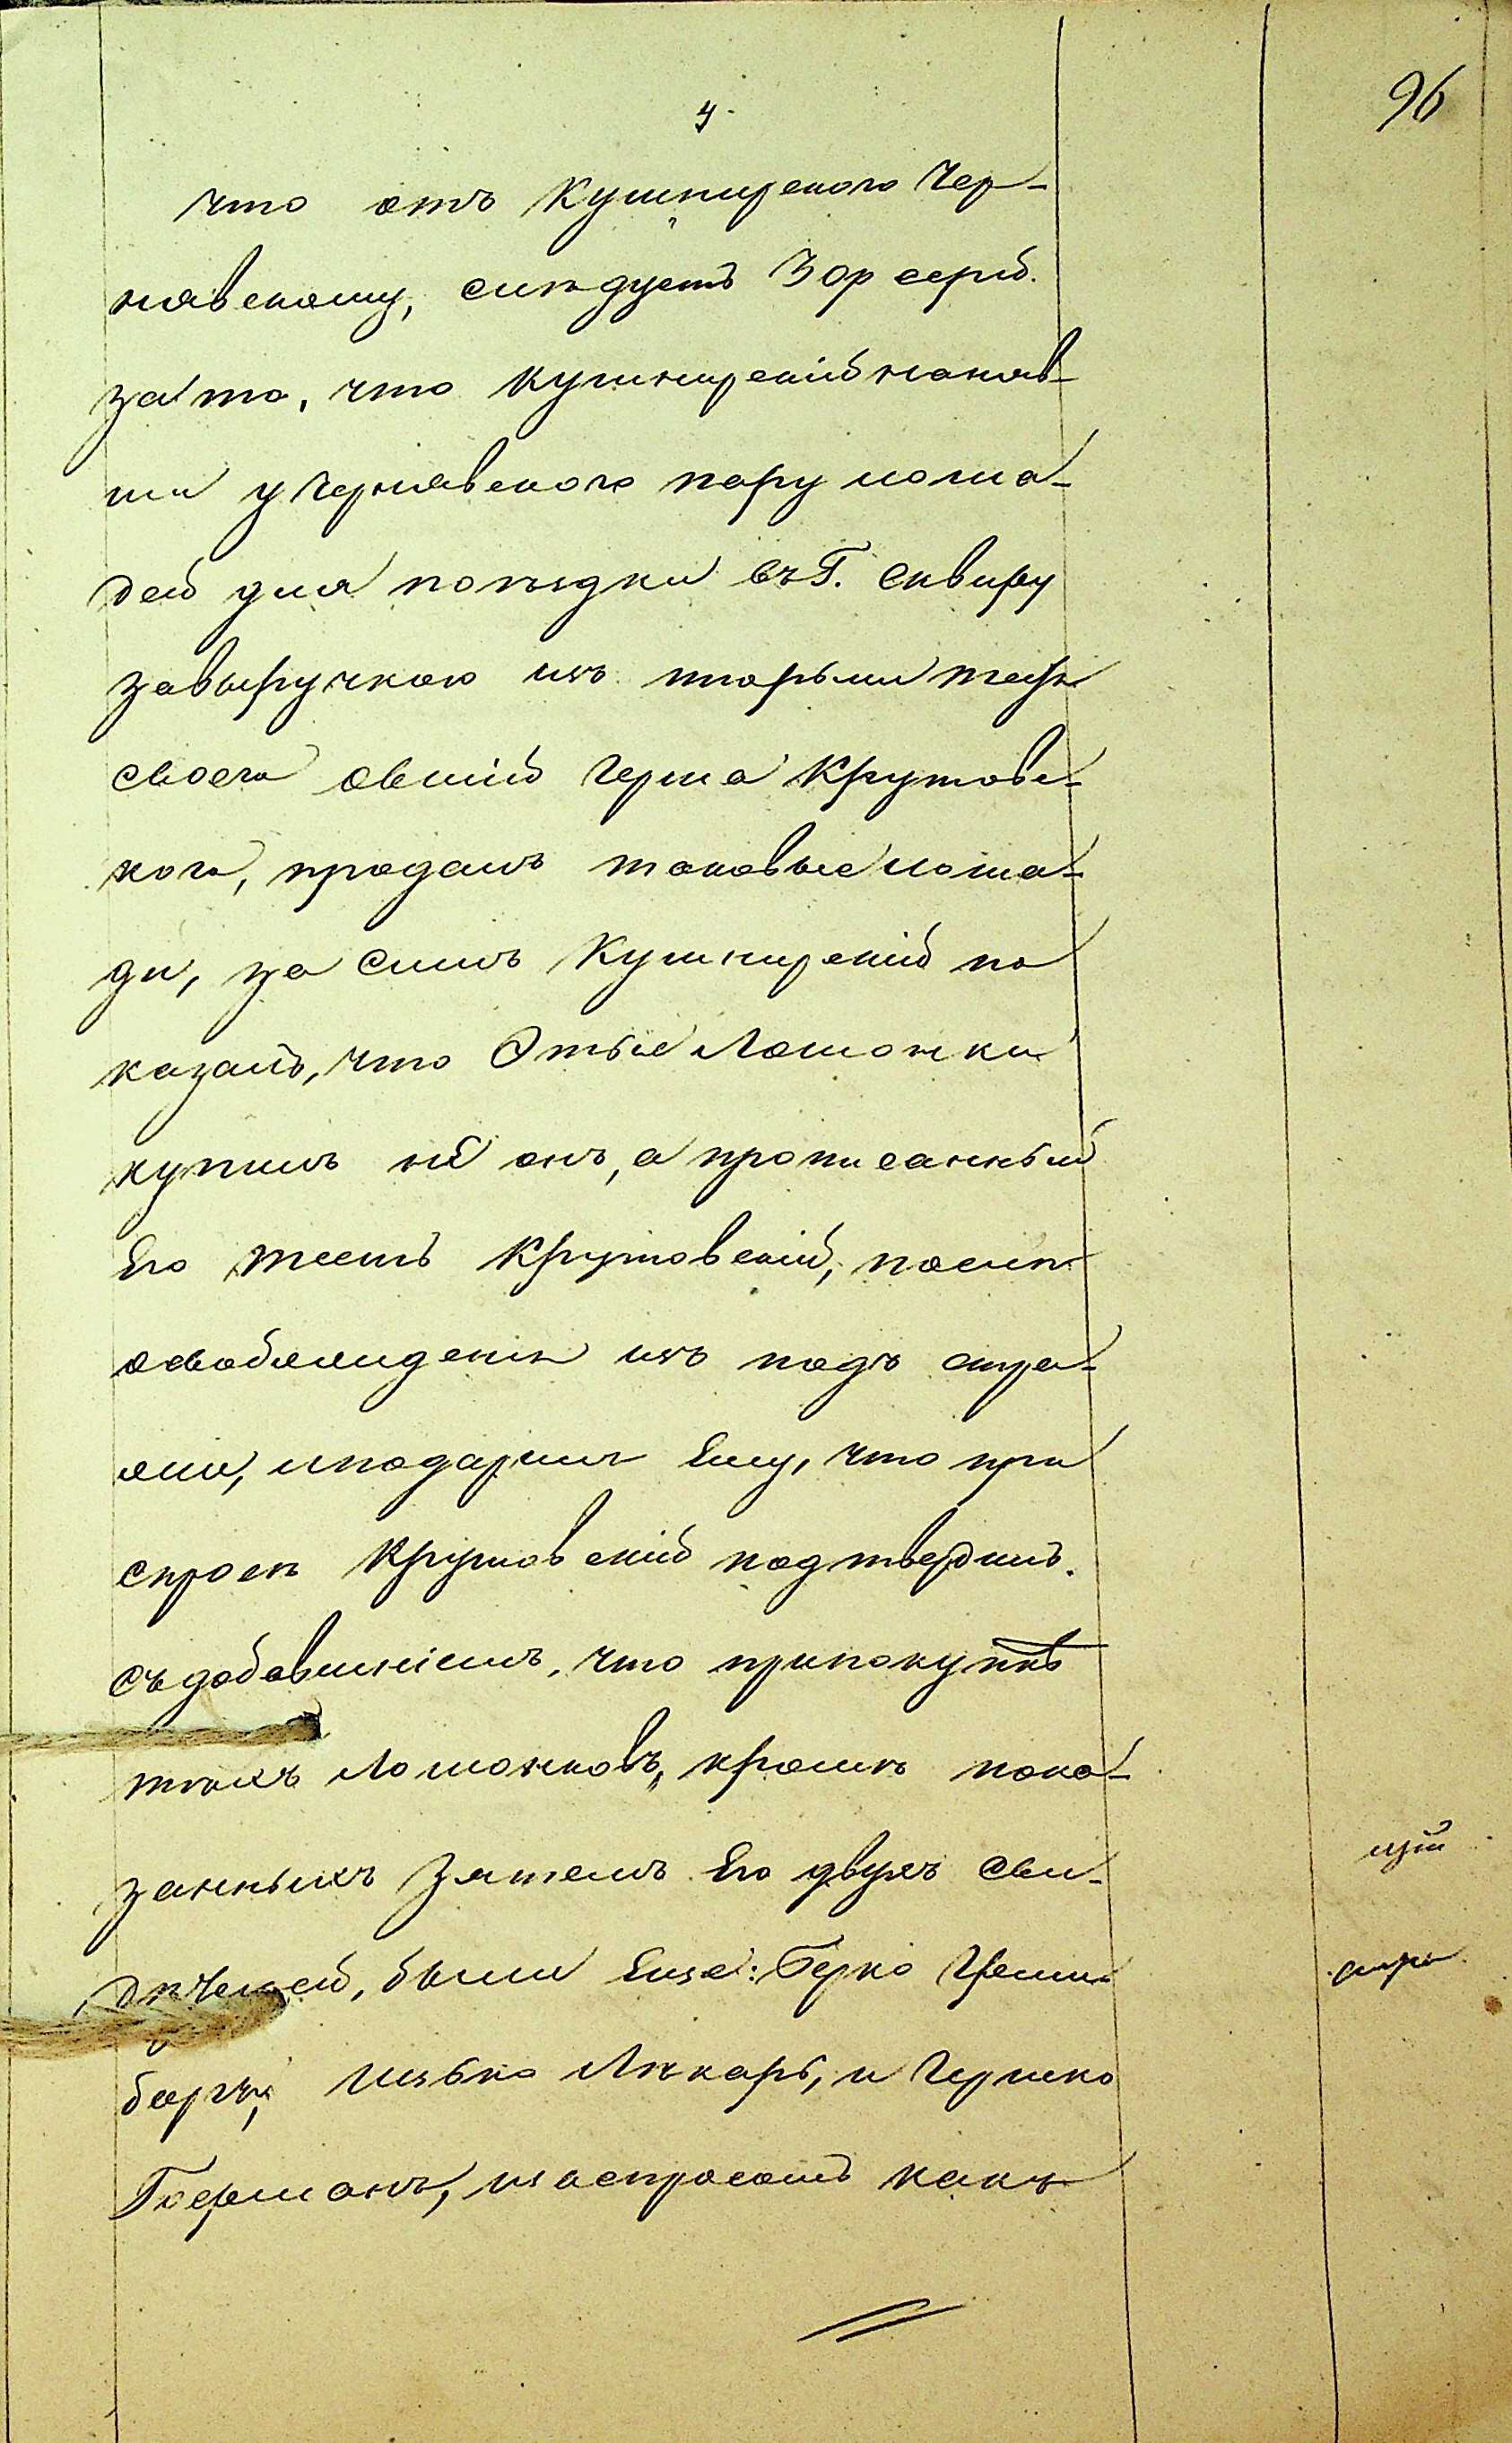 96
4.
что отъ Кушнирскаго Чер-
нявскому, слѣдуетъ 30 р сереб.
за то, что Кушнирскій наняв-
ши у Чернявскаго пару лоша-
дей для поѣздки въ Г. Сквиру
за выручкою изъ тюрьмы тестя
своего Овшія Герша Крутовс-
кого, продалъ таковые лоша-
ди, за симъ Кушнирскій по
казалъ, что Этые Лошонки
купилъ не онъ, а прописанный
Его тесть Крутовскій, послѣ
освобожденія изъ подъ стра-
жи, и подарилъ Ему, что при
спросѣ Крутовскій подтвердилъ.
съ добавленіемъ, что при покупкѣ
тѣхъ Лошонковъ, кромѣ пока-
занныхъ Зятемъ Его двухъ сви-
дѣтелей, были Еще: Берко
Ицько Лѣкарь, и Гершко
Гофманъ, и спросатъ какъ